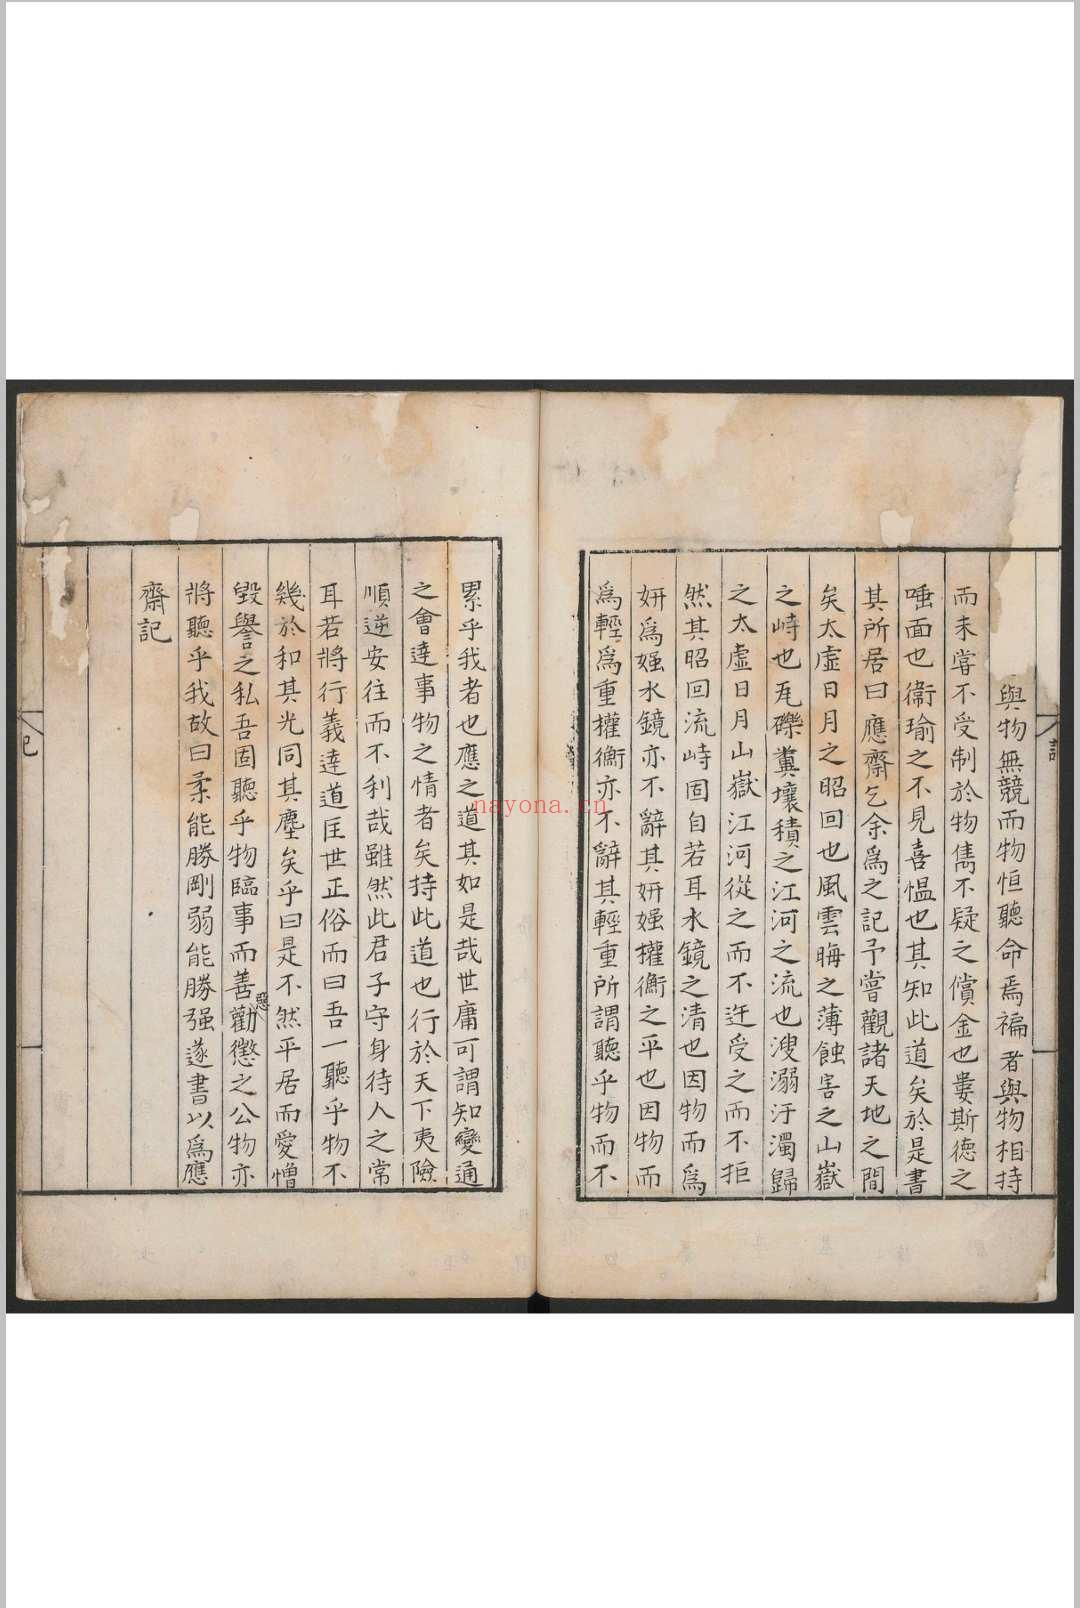 與物無競而物恒聽命焉褊者與物相持
而未甞不受制於物雋不疑之償金也婁斯德之
唾面也衞瑜之不見喜愠也其知此道矣於是書
其所居曰應齋乞余為之記予嘗觀諸天地之間
矣太虛日月之昭回也風雲晦之薄蝕害之山嶽
之峙也瓦礫糞壤積之江河之流也溲溺汙濁歸
之太虛日月山嶽江河從之而不迕受之而不拒
然其昭回流峙固自若耳水鏡之清也因物而為
妍為媸水鏡亦不辭其妍媸權衡之平也因物而
為輕為重權衡亦不辭其輕重所謂聽乎物而不
累乎我者也應之道其如是哉世庸可謂知變通
之會達事物之情者矣持此道也行於天下夷險
順逆安往而不利哉雖然此君子守身待人之常
耳若將行義達道匡世正俗而曰吾一聽乎物不
幾於和其光同其塵矣乎曰是不然平居而愛憎
毀譽之私吾固聽乎物臨事而善惡勸懲之公物亦
將聽乎我故曰柔能勝剛弱能勝强遂書以為應
齋記
記
nayona.cn